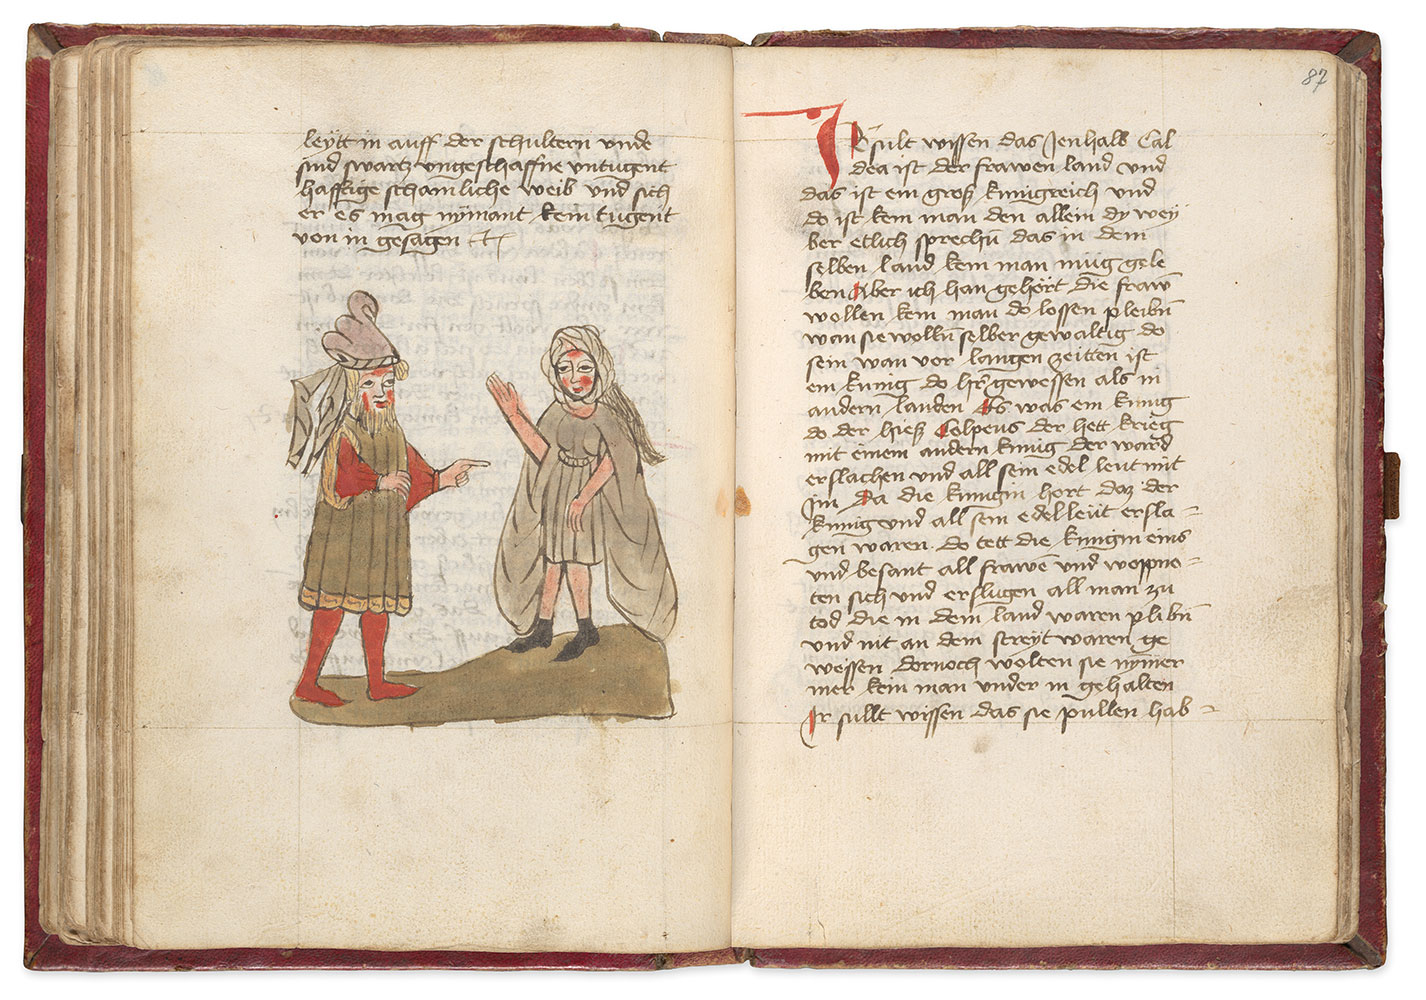 leÿtt in auff der schultern unde
sind swartz ungeschaffne untugent
hafftige schamliche weib und sich
er es mag nÿmant kein tugent
von in gesagen
87
IR sult wissen das Jenhalb Cal
dea ist der frawen land und
das ist ein groß kunigreich und
do ist kein man den allein dy wey
ber etlich sprechn̄ das in dem
selben land kein man müg gele
ben Aber ich han gehort die fraw̄
wollen kein man do lossen pleibn̄
wan sie wolln̄ selber gewaltig do
sein wan vor langen zeitten ist
ein kunig do gewessen als in
andern landen Es was ein kunig
do der hieß Colpeus der hett krieg
mit einem andern kunig der ward
erslachen und all sein edel leut mit
Jm Da die kunigin hort daz der
kunig und all sein edel leut ersla-
gen waren do tett die kunigin eins
und besant all frawē und woppno-
ten sich und erslugen all man zu
tod die in dem land waren plibn̄
und nit an dem streÿt waren ge
wessen dornoch wolten sie nÿmer
mer kein man under in gehalten
Ir sullt wissen das sie pullen hab-